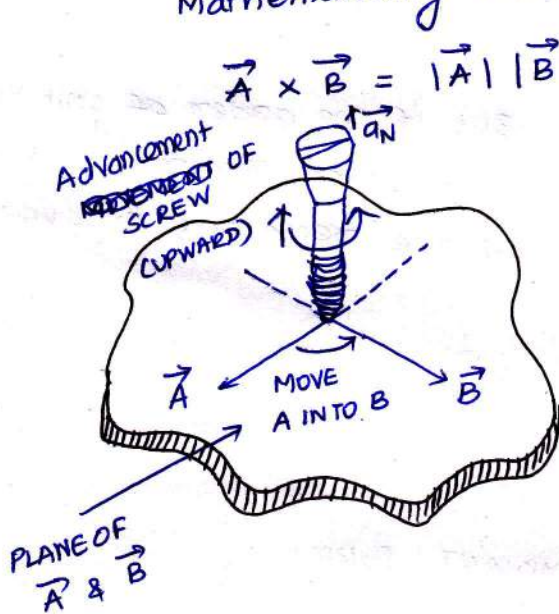 Mathematically
A⃗ × B⃗ = |A⃗| |B⃗
a⃗N
Advancement
OF
SCREW
(UPWARD)
A⃗
MOVE
A INTO B
B⃗
PLANE OF
A⃗ & B⃗